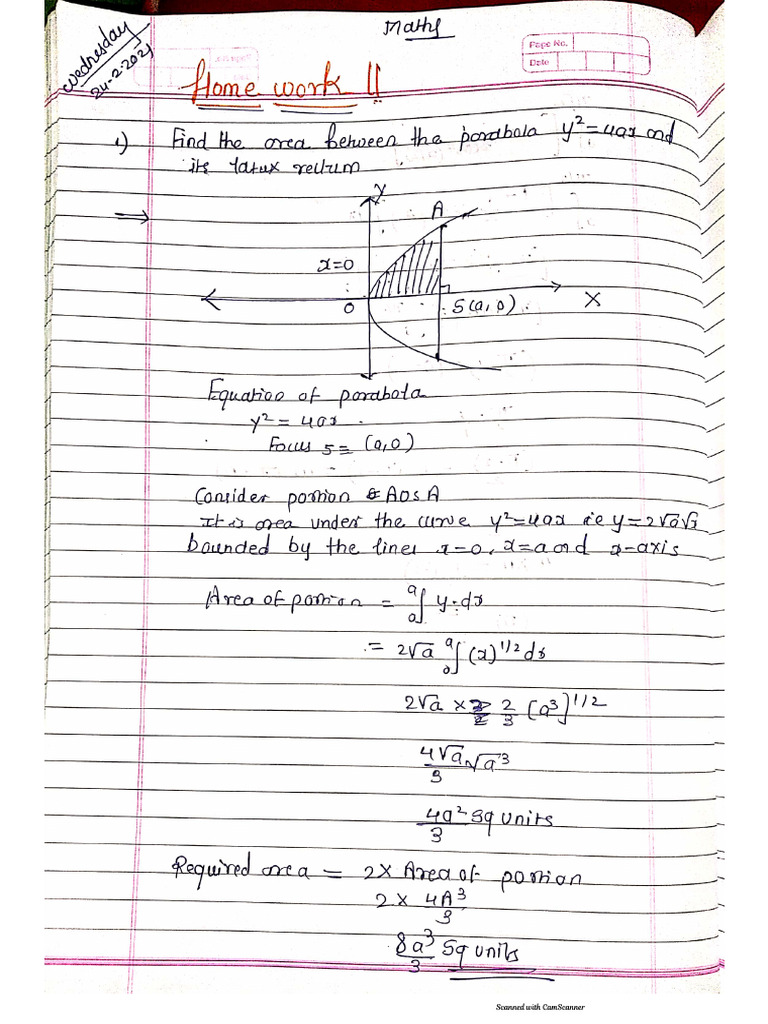 Maths
Wednesday
24-2-2021
Page No.
Date
Home work !!
1) Find the area between the parabola y² = 4ax and
its latux rectum
Y
A
x=0
O
S(a, 0)
X
Equation of parabola
y² = 4ax
Focus S = (a,0)
Consider portion AOSA
It is area under the curve y²=4ax ie y=2√a√x
bounded by the lines x=0, x=a and x-axis
Area of portion = ₀∫ᵃ y·dx
= 2√a ₀∫ᵃ (x)^1/2 dx
2√a × 2/3 [a³]^1/2
4√a/3 √a³
4a²/3 sq units
Required area = 2× Area of portion
2 × 4A³/3
8a³/3 Sq units
Scanned with CamScanner